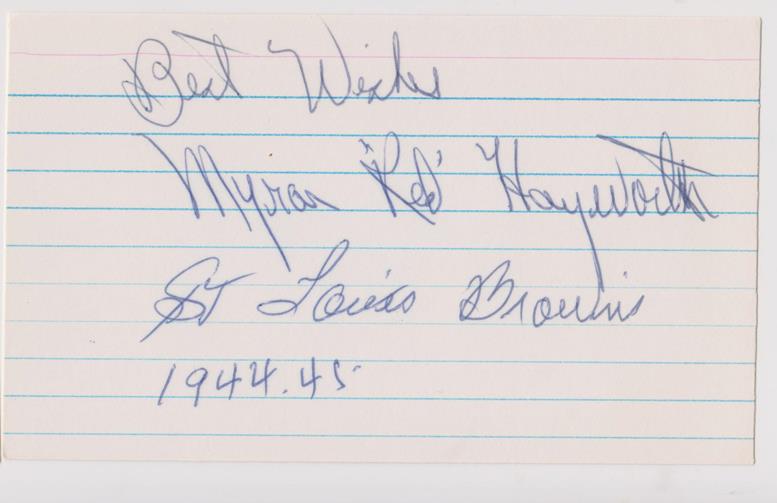 Best Wishes
Myron "Red" Hayworth
St Louis Browns
1944.45